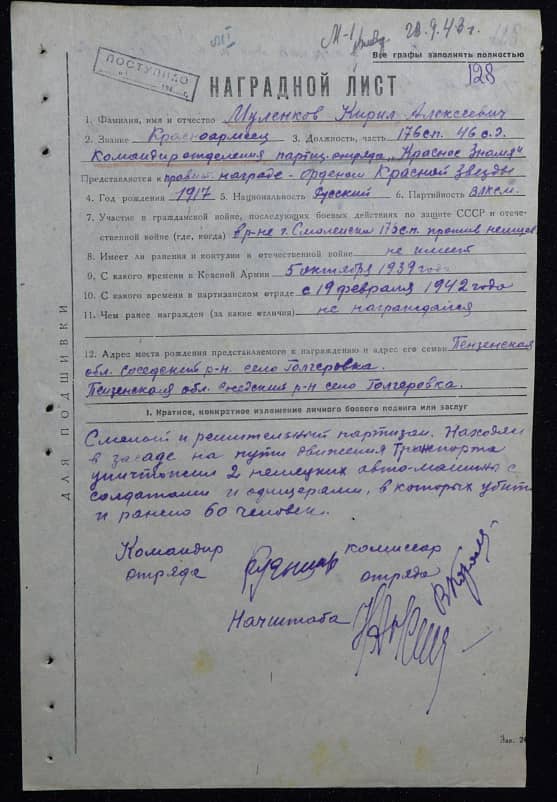 М-1 28.9.43г.
Все графы заполнять полностью
128
ПОСТУПИЛО
НАГРАДНОЙ ЛИСТ
1. Фамилия, имя и отчество Муленков Кирил Алексеевич
2. Звание Красноармеец 3. Должность, часть 176сп. 46 с.д.
Командир отделения партиз. отряда „Красное Знамя"
Представляется к правит. награде - орденом Красной Звезды
4. Год рождения 1917 5. Национальность Русский 6. Партийность ВЛКСМ.
7. Участие в гражданской войне, последующих боевых действиях по защите СССР и отече-
ственной войне (где, когда) в р-не г. Смоленска 175сп. против немцев
8. Имеет ли ранения и контузии в отечественной войне не имеет
9. С какого времени в Красной Армии 5 октября 1939 года
10. С какого времени в партизанском отряде с 19 февраля 1942 года
11. Чем ранее награжден (за какие отличия) не награждался
12. Адрес места рождения представляемого к награждению и адрес его семьи Пензенская
обл. Соседский р-н. село Голгеровка.
Пензенская обл. Соседский р-н село Голгеровка.
I. Краткое, конкретное изложение личного боевого подвига или заслуг
Смелый и решительный партизан. Находясь
в засаде на пути движения транспорта
уничтожил 2 немецких авто-машины с
солдатами и офицерами, в которых убито
и ранено 60 человек.
Командир комиссар
отряда отряда
Начштаба
ДЛЯ ПОДШИВКИ
Зак.